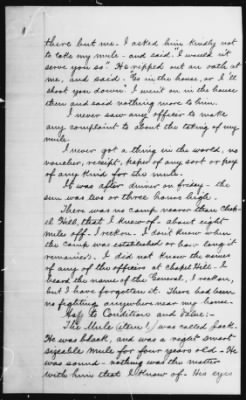 there but me. I asked him kindly not
to take my mule - and said "I would n't
serve you so". He ripped out an oath at
me, and said - "Go in the house, or I 'll
shoot you down". I went on in the house
then and said nothing more to him.
I never saw any officer to make
any complaint to about the taking of my
mule.
I never got a thing in the world, no
voucher, receipt, paper of any sort or pay
of any kind for the mule.
It was after dinner on Friday - the
sun was two or three hours high.
There was no camp nearer than Chap-
el Hill, that I knew of - about eight
miles off. I reckon. I don't know when
the camp was established or how long it
remained. I did not know the names
of any of the officers at Chapel Hill - I
heard the name of the General, I reckon,
but I have forgotten it. There had been
no fighting anywhere near my house.
to Conditions and Value:-
The Mule (item 1) was called Jack.
He was black, and was a right smart
sizeable mule for four years old - He
was sound - nothing was the matter
with him that I know of. His eyes